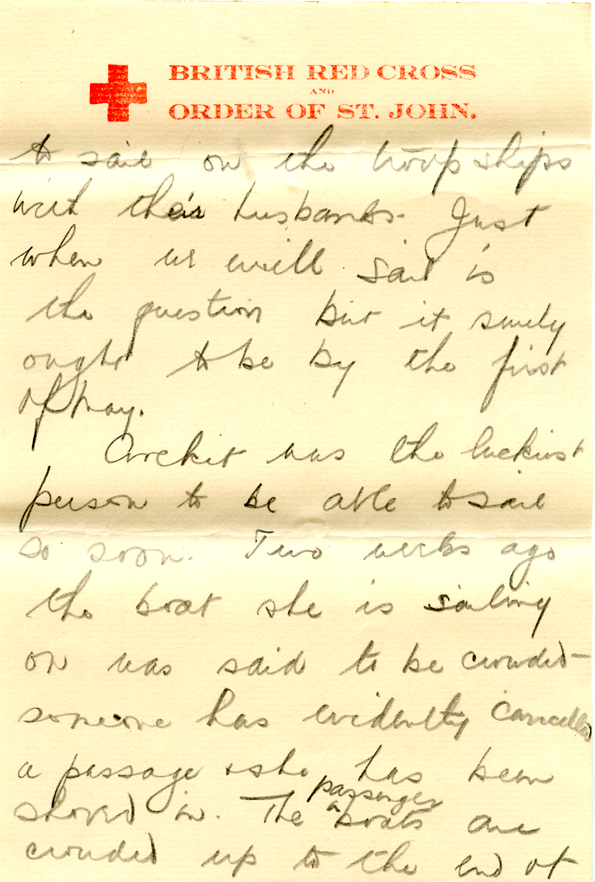 BRITISH RED CROSS
AND
ORDER OF ST. JOHN.
to sail on the troop ships
with their husbands. Just
when we will sail is
the question but it surely
ought to be by the first
of May.
was the luckiest
person to be able to sail
so soon. Two weeks ago
the boat she is sailing
on was said to be crowded -
someone has evidently cancelled
a passage & she has been
shoved in. The passenger boats are
crowded up to the end of